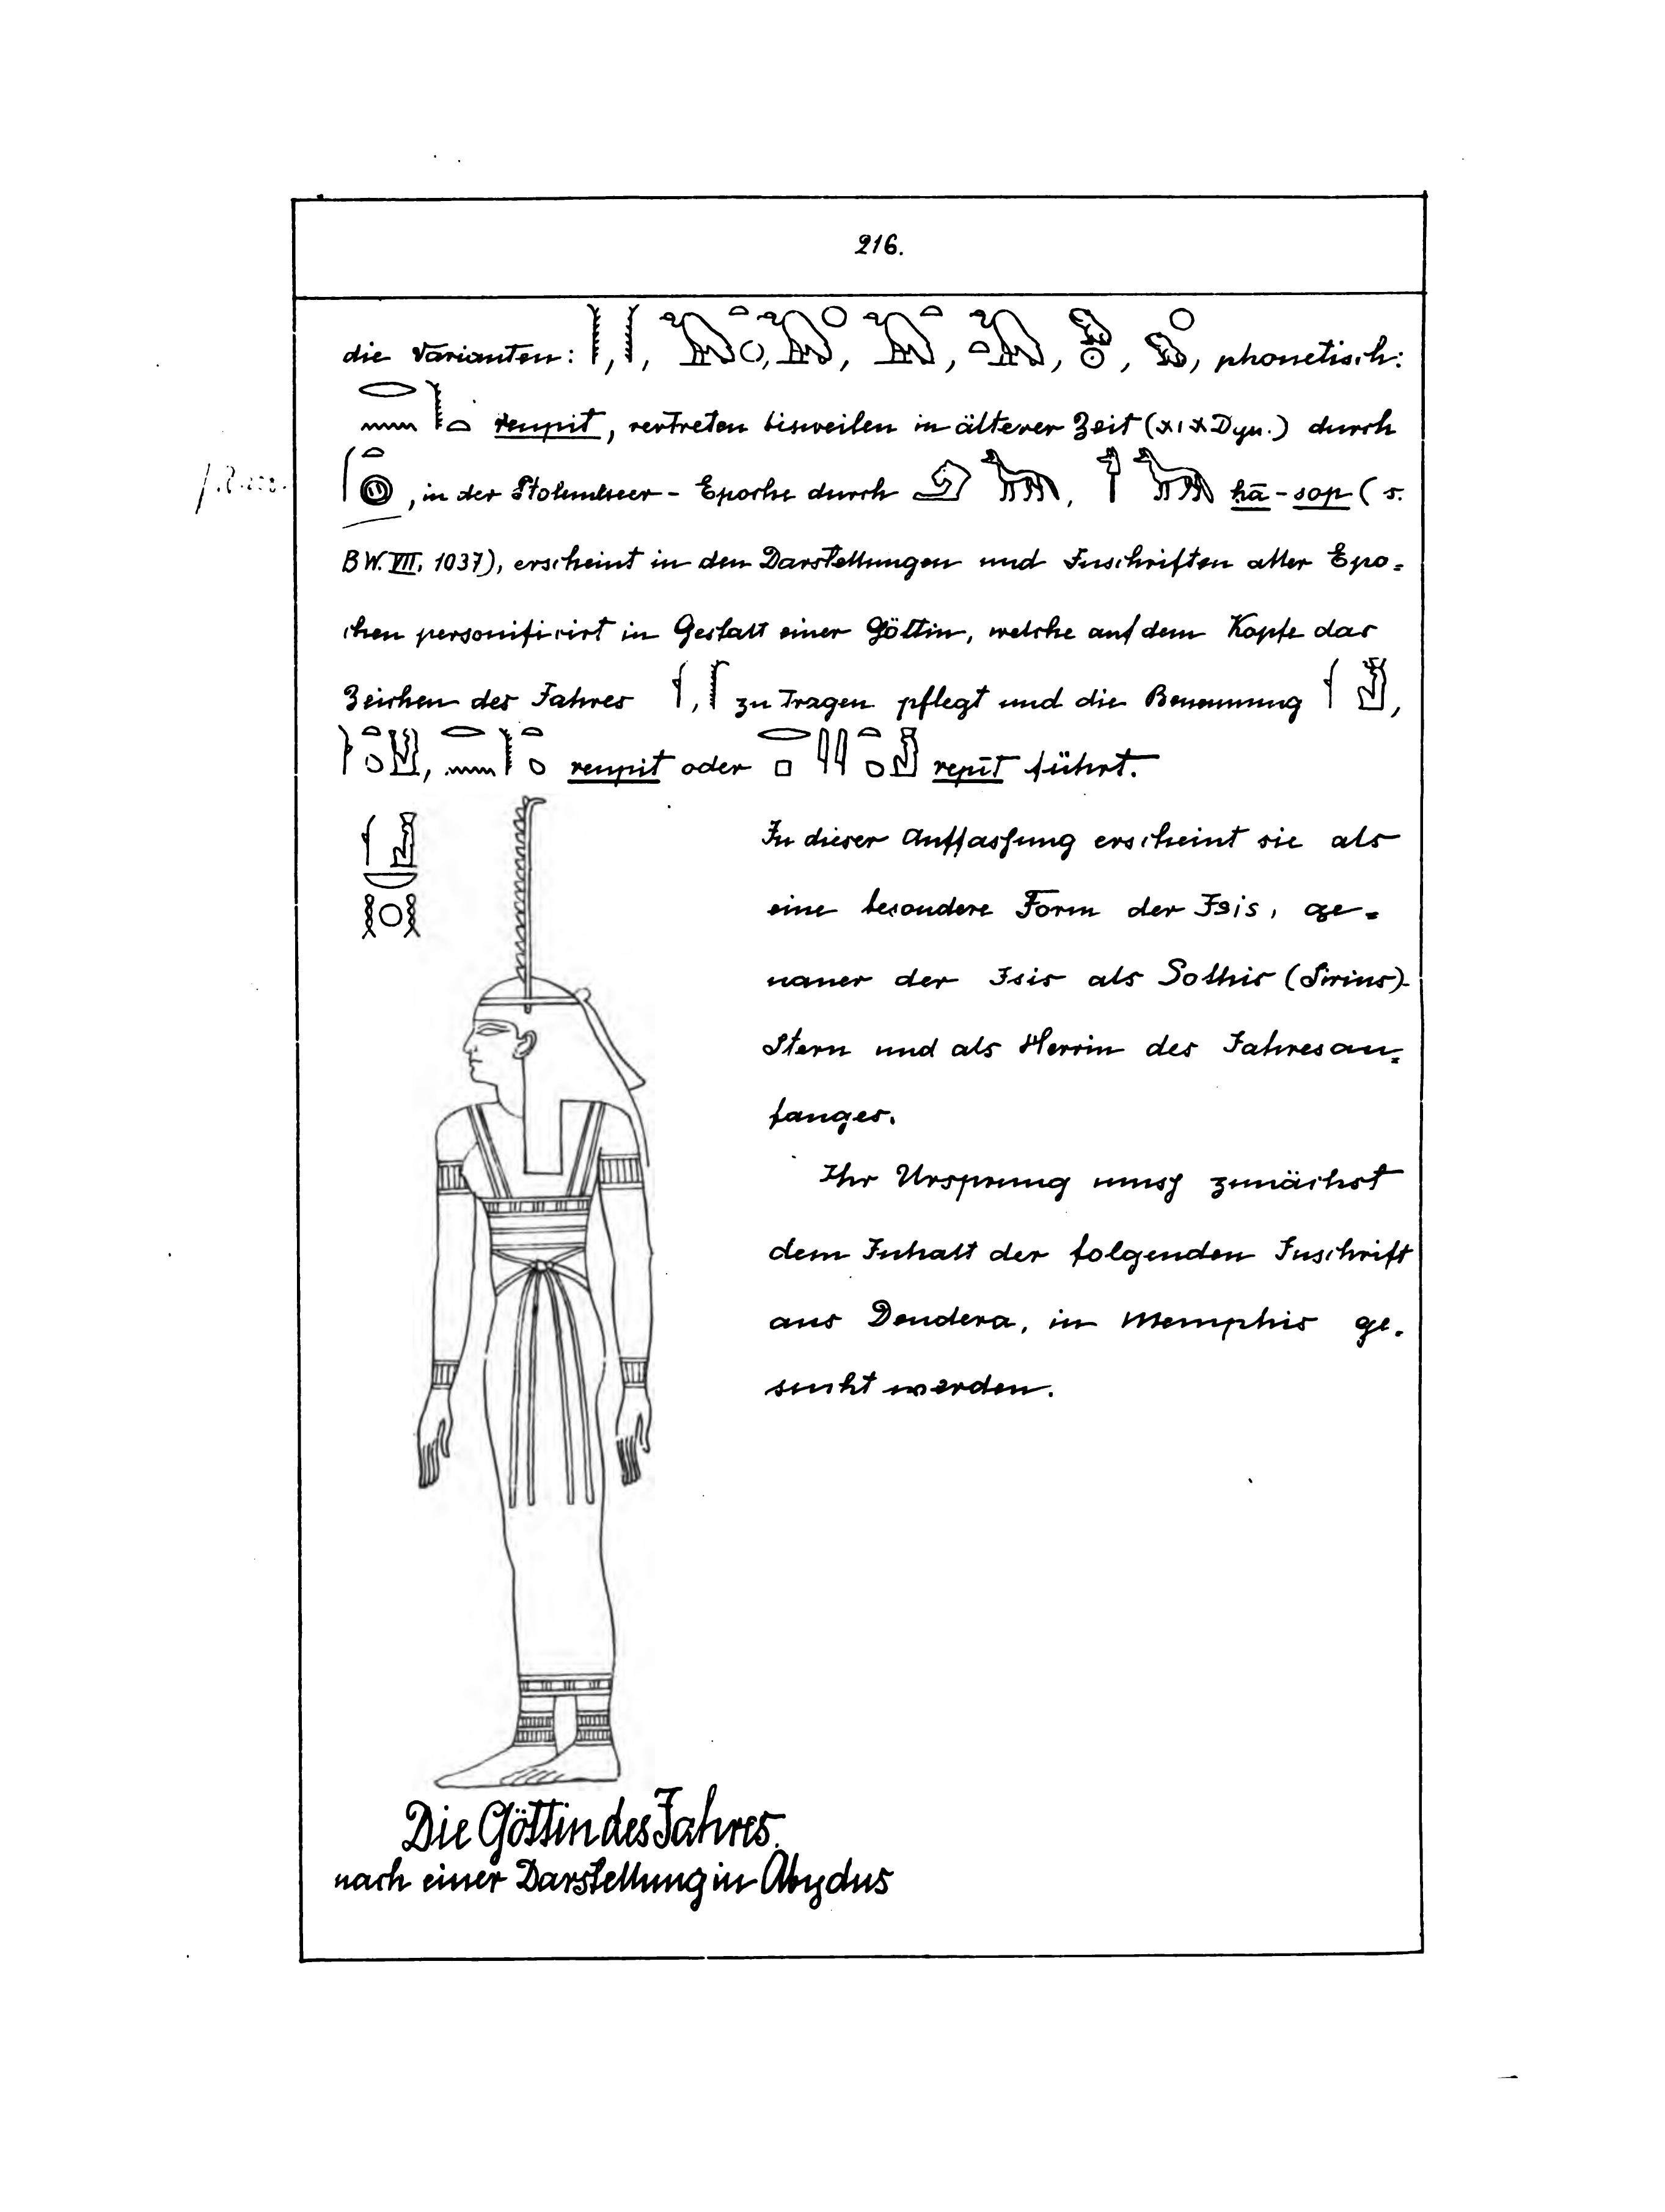 216.
die Varianten: , , , , , , , phonetisch:
renpit, vertreten bisweilen in älterer Zeit (XIX Dyn.) durch
, in der Ptolemäer-Epoche durch , hā-sop (s.
BW. VII, 1037), erscheint in den Darstellungen und Inschriften aller Epo=
chen personificirt in Gestalt einer Göttin, welche auf dem Kopfe das
Zeichen des Jahres , zu tragen pflegt und die Benennung ,
, renpit oder repit führt.
In dieser Auffassung erscheint sie als
eine besondere Form der Isis, ge=
nauer der Isis als Sothis (Sirius)-
Stern und als Herrin des Jahresan=
fanges.
Ihr Ursprung muss zunächst
dem Inhalt der folgenden Inschrift
aus Dendera, in Memphis ge=
sucht werden.
Die Göttin des Jahres.
nach einer Darstellung in Abydus